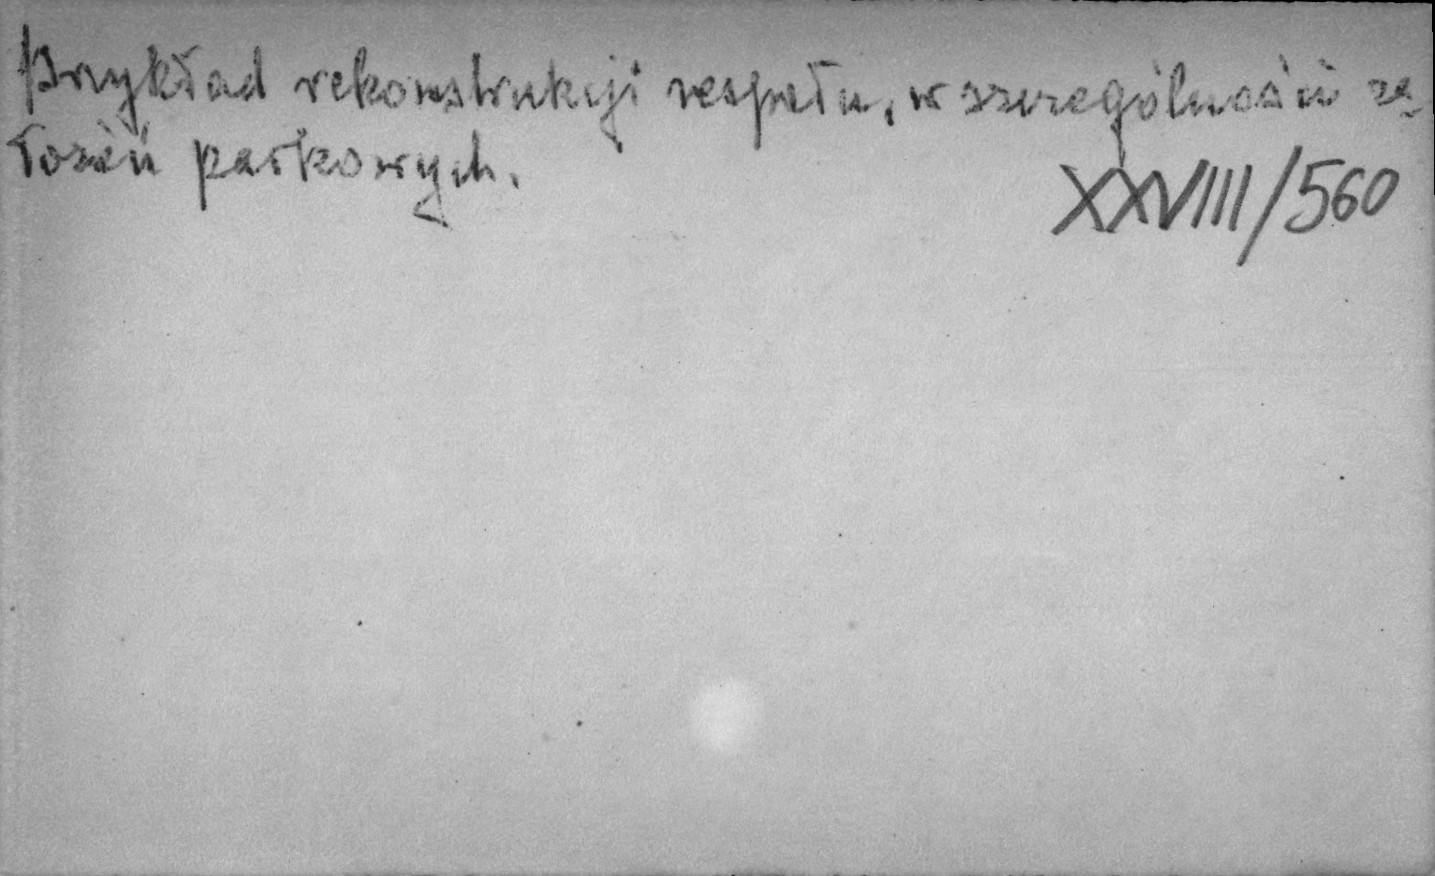 Przykład rekonstrukcji zespołu, w szczególności za
łożeń parkowych.
XXVIII/560